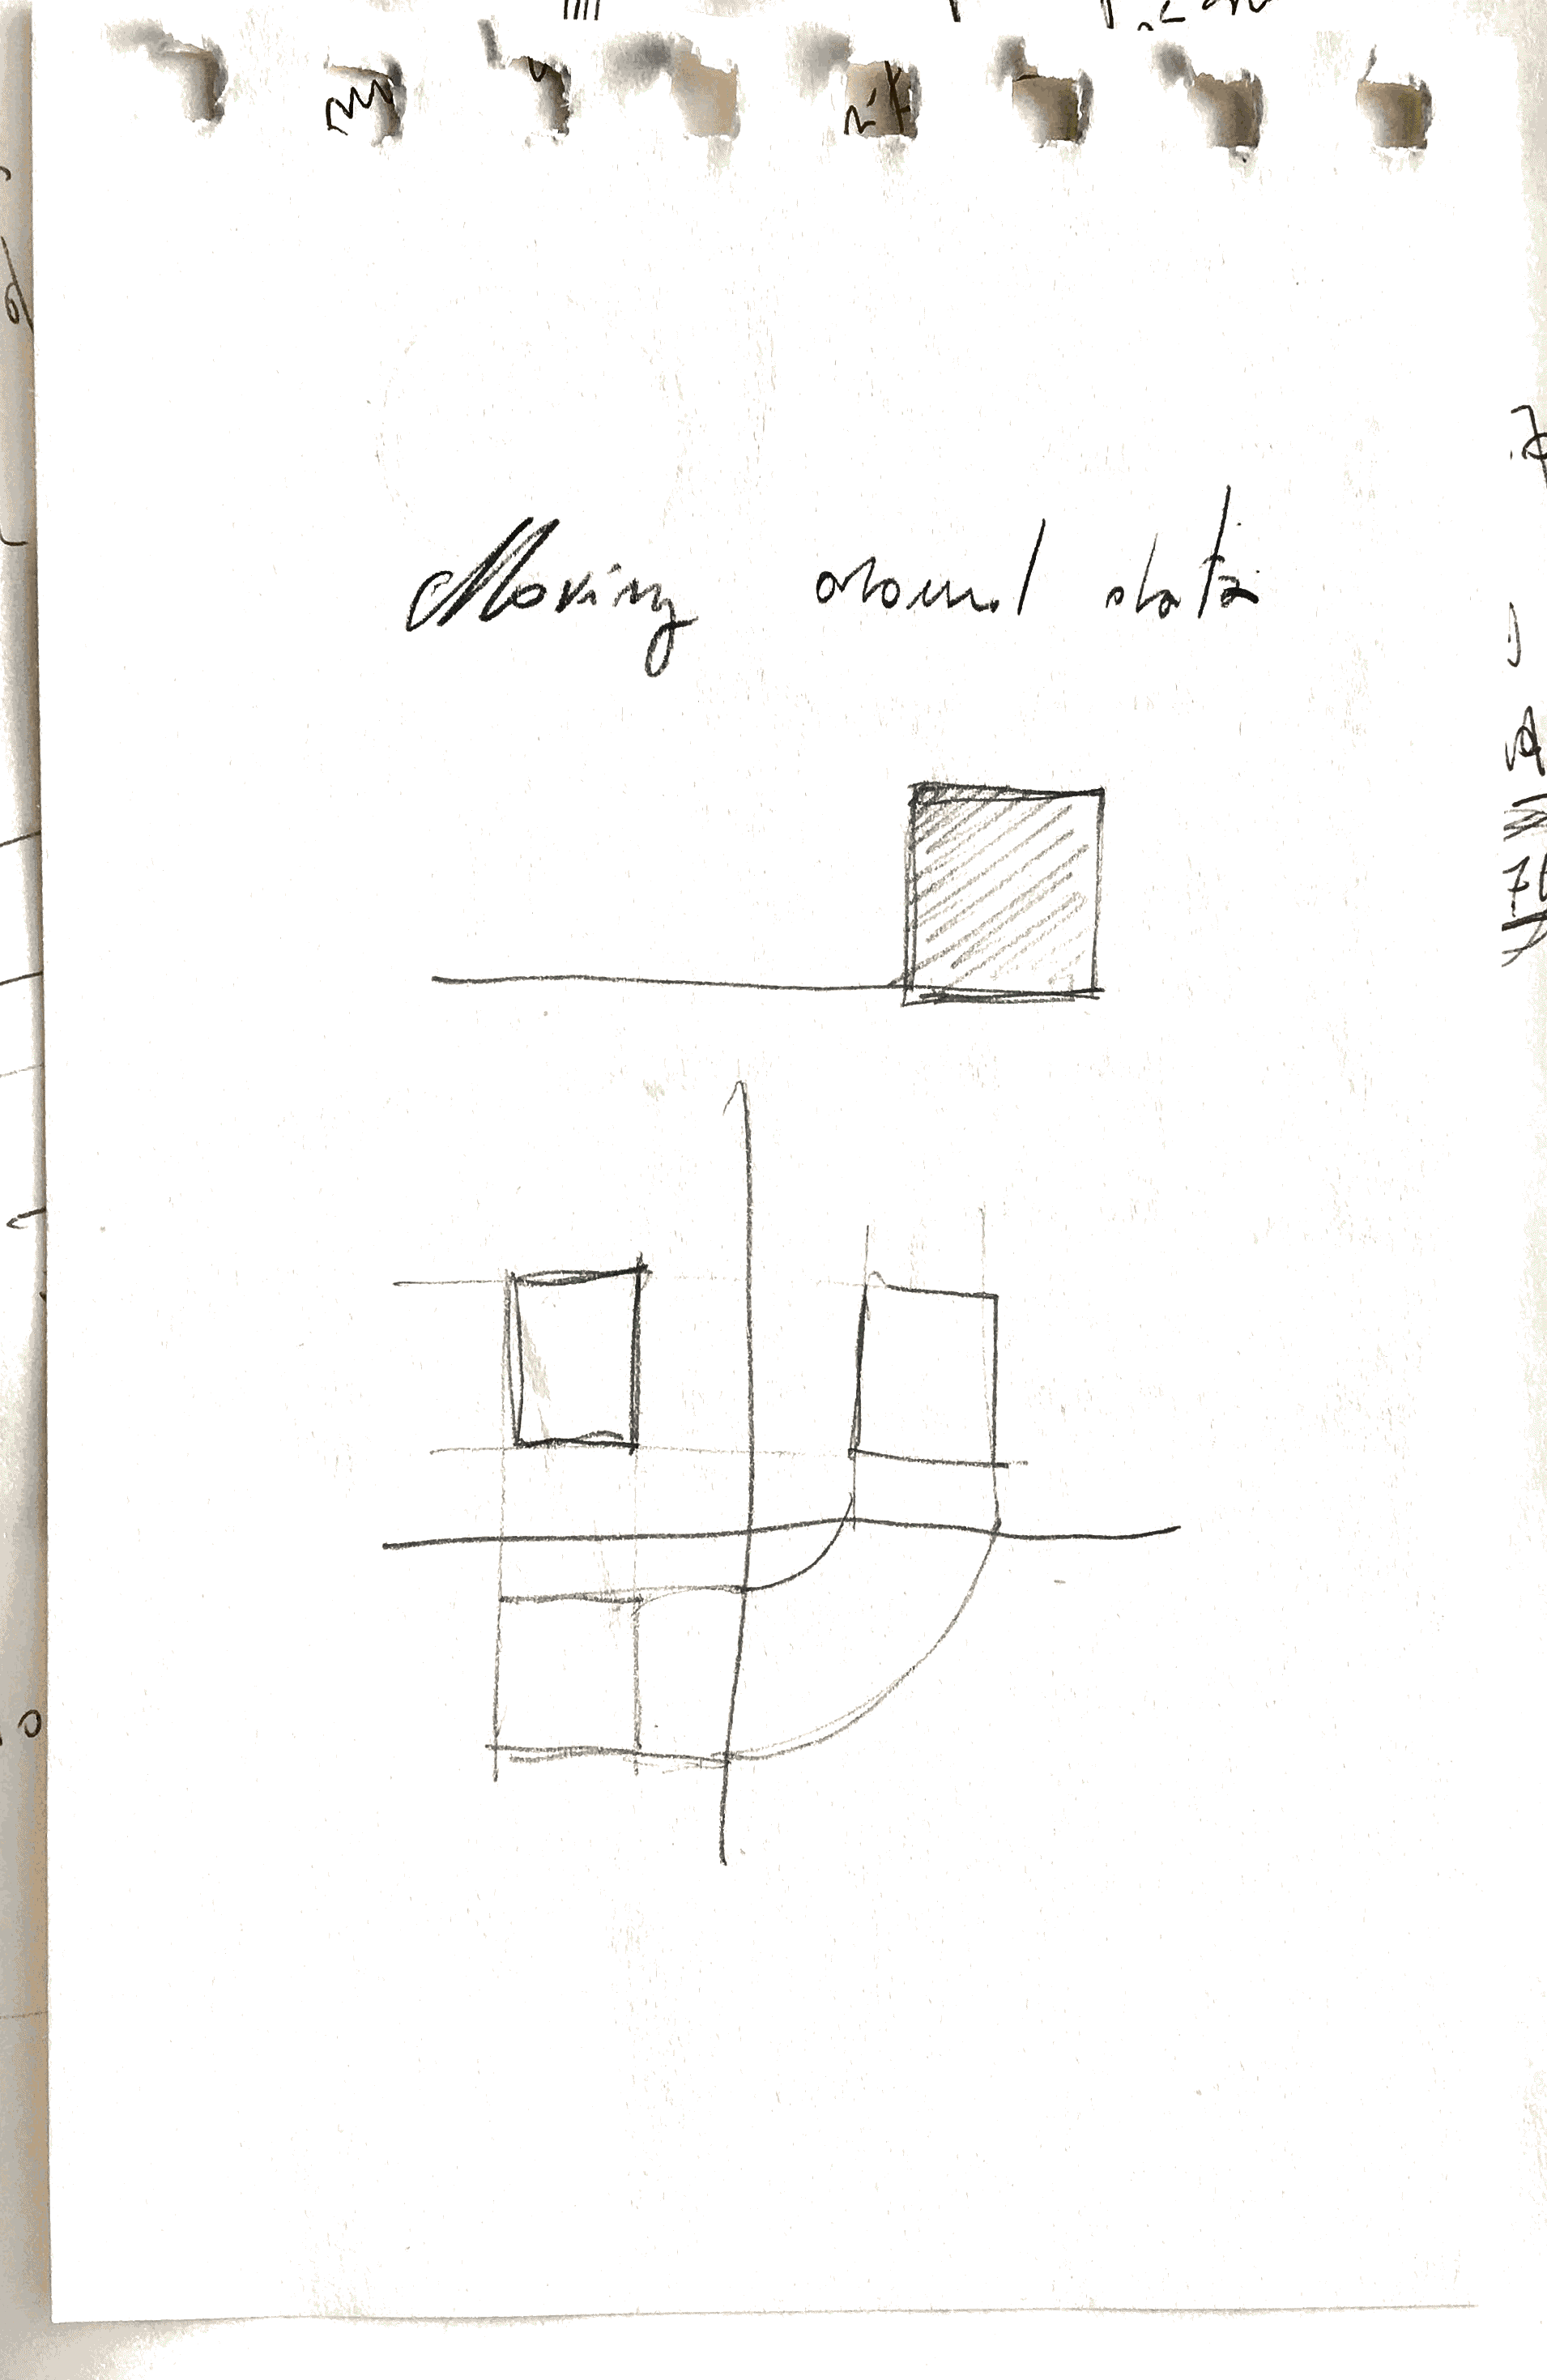 Moving around data